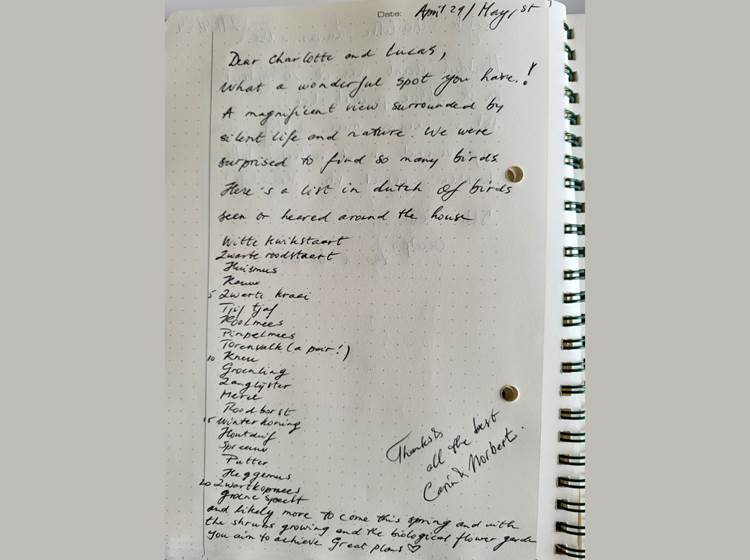 Date: April 29/May 1st
Dear Charlotte and Lucas,
What a wonderful spot you have!
A magnificent view surrounded by
silent life and nature. We were
surprised to find so many birds
Here's a list in dutch of birds
seen or heared around the house
Witte kwikstaart
Zwarte roodstaart
Huismus
Kauw
5 Zwarte kraai
Tjif tjaf
Koolmees
Pimpelmees
Torenvalk (a pair!)
10 Kneu
Groenling
Zanglijster
Merel
Roodborst
15 Winterkoning
Houtduif
Spreeuw
Putter
Heggemus
20 Zwartkopmees
groene specht
and likely more to come this spring and with
the shrubs growing and the biological flower garden
you aim to achieve Great plans ♡
Thanks &
all the best
Carin & Norbert.